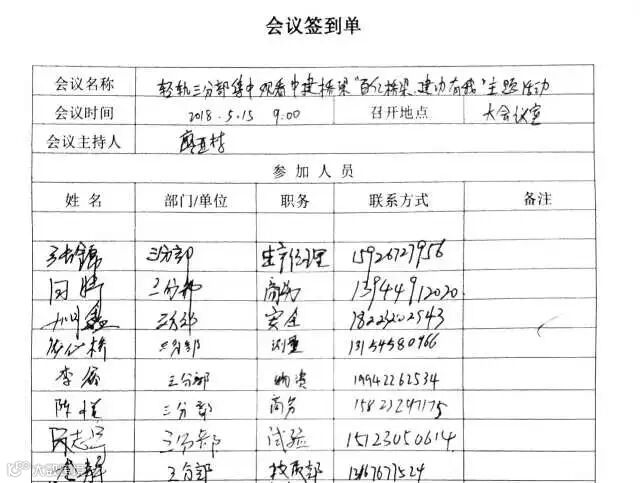 会议签到单
会议名称 轻轨三分部集中观看中建桥梁"百亿桥梁、建功有我"主题活动
会议时间 2018.5.15 9:00 召开地点 大会议室
会议主持人
参加人员
姓名 部门/单位 职务 联系方式 备注
三分部 生产经理 15926727956
三分部 商务 13944912020
三分部 安全 18223202943
三分部 测量 13154580966
三分部 物资 19942262534
陈 三分部 商务 15823247175
志 三分部 试验 15123050614
三分部 技质部 13167677524